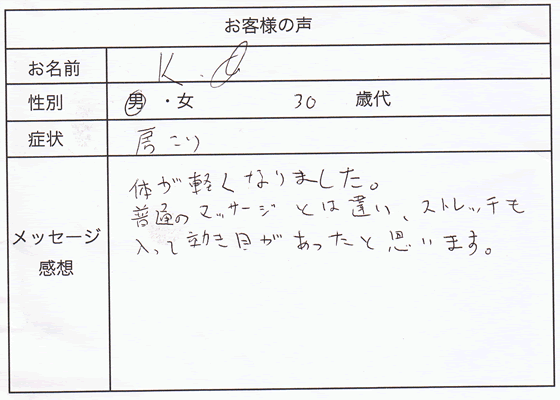 お客様の声
お名前 K.O
性別 男・女 30 歳代
症状 肩こり
メッセージ
感想
体が軽くなりました。
普通のマッサージとは違い、ストレッチも
入って効き目があったと思います。